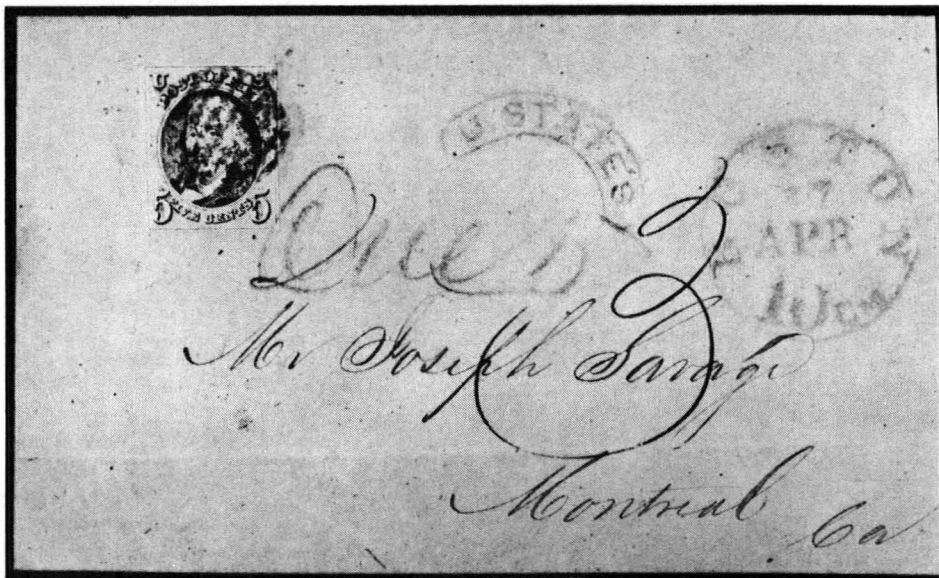 U S
POST OFFICE
FIVE CENTS
5 5
U. STATES
BOSTON
27
APR
10 cts
3
Mr Joseph Savage
Montreal
Ca